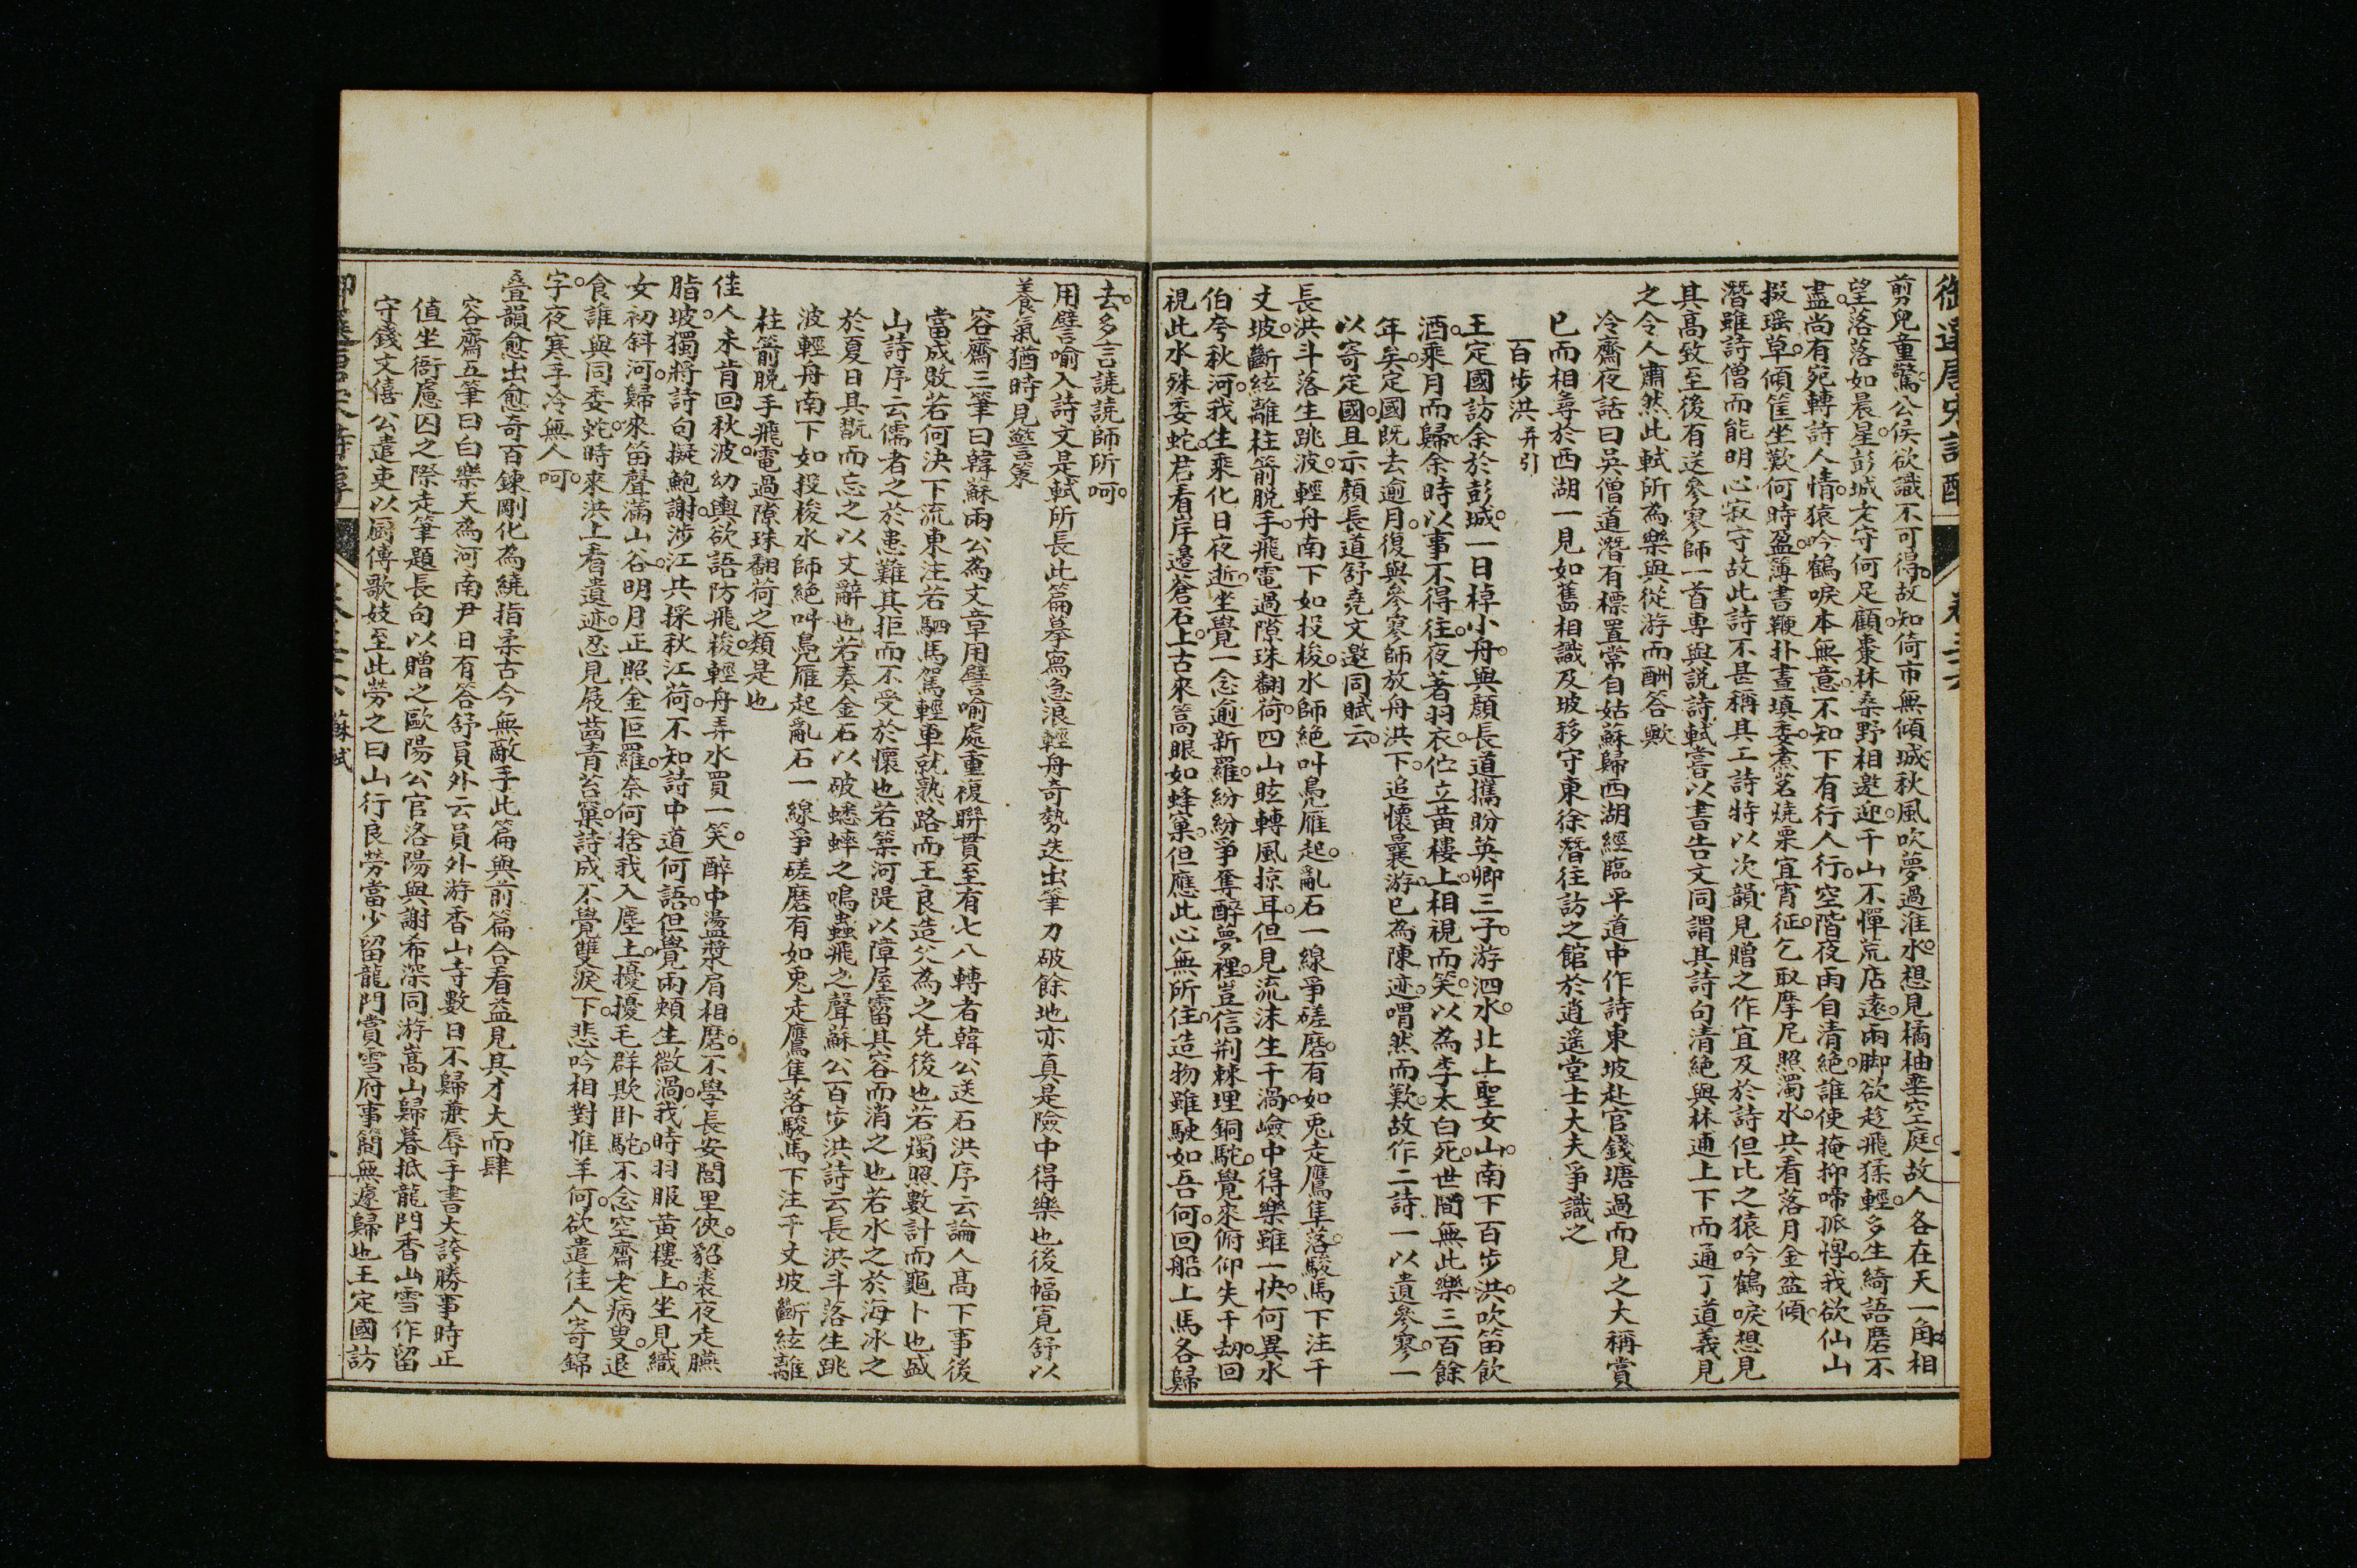 御選唐宋詩醇
卷三十六
前兒童驚公侯欲識不可得故知倚市無傾城秋風吹夢過淮水想見橘柚垂空庭故人各在天一角相
望落落如晨星彭城老守何足顧棗林桑野相邀迎千山不憚荒店遠兩脚欲趁飛猱輕多生綺語磨不
盡尚有宛轉詩人情猿吟鶴唳本無意不知下有行人行空階夜雨自清絶誰使掩抑啼孤惸我欲仙山
掇瑶草傾筐坐歎何時盈簿書鞭扑晝填委煮茗燒栗宜宵征乞取摩尼照濁水共看落月金盆傾
潛雖詩僧而能明心寂守故此詩不甚稱其工詩特以次韻見贈之作宜及於詩但比之猿吟鶴唳想見
其高致至後有送參寥師一首專與説詩軾嘗以書告文同謂其詩句清絶與林逋上下而通了道義見
之令人肅然此軾所為樂與從游而酬答歟
冷齋夜話曰吳僧道潛有標置常自姑蘇歸西湖經臨平道中作詩東坡赴官錢塘過而見之大稱賞
已而相尋於西湖一見如舊相識及坡移守東徐潛往訪之館於逍遥堂士大夫爭識之
百步洪并引
王定國訪余於彭城一日棹小舟與顔長道攜盼英卿三子游泗水北上聖女山南下百步洪吹笛飲
酒乘月而歸余時以事不得往夜著羽衣佇立黄樓上相視而笑以為李太白死世間無此樂三百餘
年矣定國既去逾月復與參寥師放舟洪下追懷曩游已為陳迹喟然而歎故作二詩一以遺參寥一
以寄定國且示顔長道舒堯文邀同賦云
長洪斗落生跳波輕舟南下如投梭水師絶叫鳧雁起亂石一線爭磋磨有如兎走鷹隼落駿馬下注千
丈坡斷絃離柱箭脱手飛電過隙珠翻荷四山眩轉風掠耳但見流沫生千渦嶮中得樂雖一快何異水
伯夸秋河我生乘化日夜逝坐覺一念逾新羅紛紛爭奪醉夢裡豈信荆棘埋銅駝覺來俯仰失千劫回
視此水殊委蛇君看岸邊蒼石上古來篙眼如蜂窠但應此心無所住造物雖駛如吾何回船上馬各歸
去多言譊譊師所呵
用譬喻入詩文是軾所長此篇摹寫急浪輕舟奇勢迭出筆力破餘地亦真是險中得樂也後幅寬舒以
養氣猶時見警策
容齋三筆曰韓蘇兩公為文章用譬喻處重複聯貫至有七八轉者韓公送石洪序云論人高下事後
當成敗若何決下流東注若駟馬駕輕車就熟路而王良造父為之先後也若燭照數計而龜卜也盛
山詩序云儒者之於患難其拒而不受於懷也若築河隄以障屋霤其容而消之也若水之於海冰之
於夏日其翫而忘之以文辭也若奏金石以破蟋蟀之鳴蟲飛之聲蘇公百步洪詩云長洪斗落生跳
波輕舟南下如投梭水師絶叫鳧雁起亂石一線爭磋磨有如兎走鷹隼落駿馬下注千丈坡斷絃離
柱箭脱手飛電過隙珠翻荷之類是也
佳人未肯回秋波幼輿欲語防飛梭輕舟弄水買一笑醉中盪槳肩相磨不學長安閭里俠貂裘夜走臙
脂坡獨將詩句擬鮑謝涉江共採秋江荷不知詩中道何語但覺兩頰生微渦我時羽服黄樓上坐見織
女初斜河歸來笛聲滿山谷明月正照金叵羅奈何捨我入塵土擾擾毛群欺卧駝不念空齋老病叟退
食誰與同委蛇時來洪上看遺迹忍見屐齒青苔窠詩成不覺雙淚下悲吟相對惟羊何欲遣佳人寄錦
字夜寒手冷無人呵
叠韻愈出愈奇百鍊剛化為繞指柔古今無敵手此篇與前篇合看益見其才大而肆
容齋五筆曰白樂天為河南尹日有答舒員外云員外游香山寺數日不歸兼辱手書大誇勝事時正
值坐衙慮囚之際走筆題長句以贈之歐陽公官洛陽與謝希深同游嵩山歸暮抵龍門香山雪作留
守錢文僖公遣吏以厨傳歌妓至此勞之曰山行良勞當少留龍門賞雪府事簡無遽歸也王定國訪
蘇軾